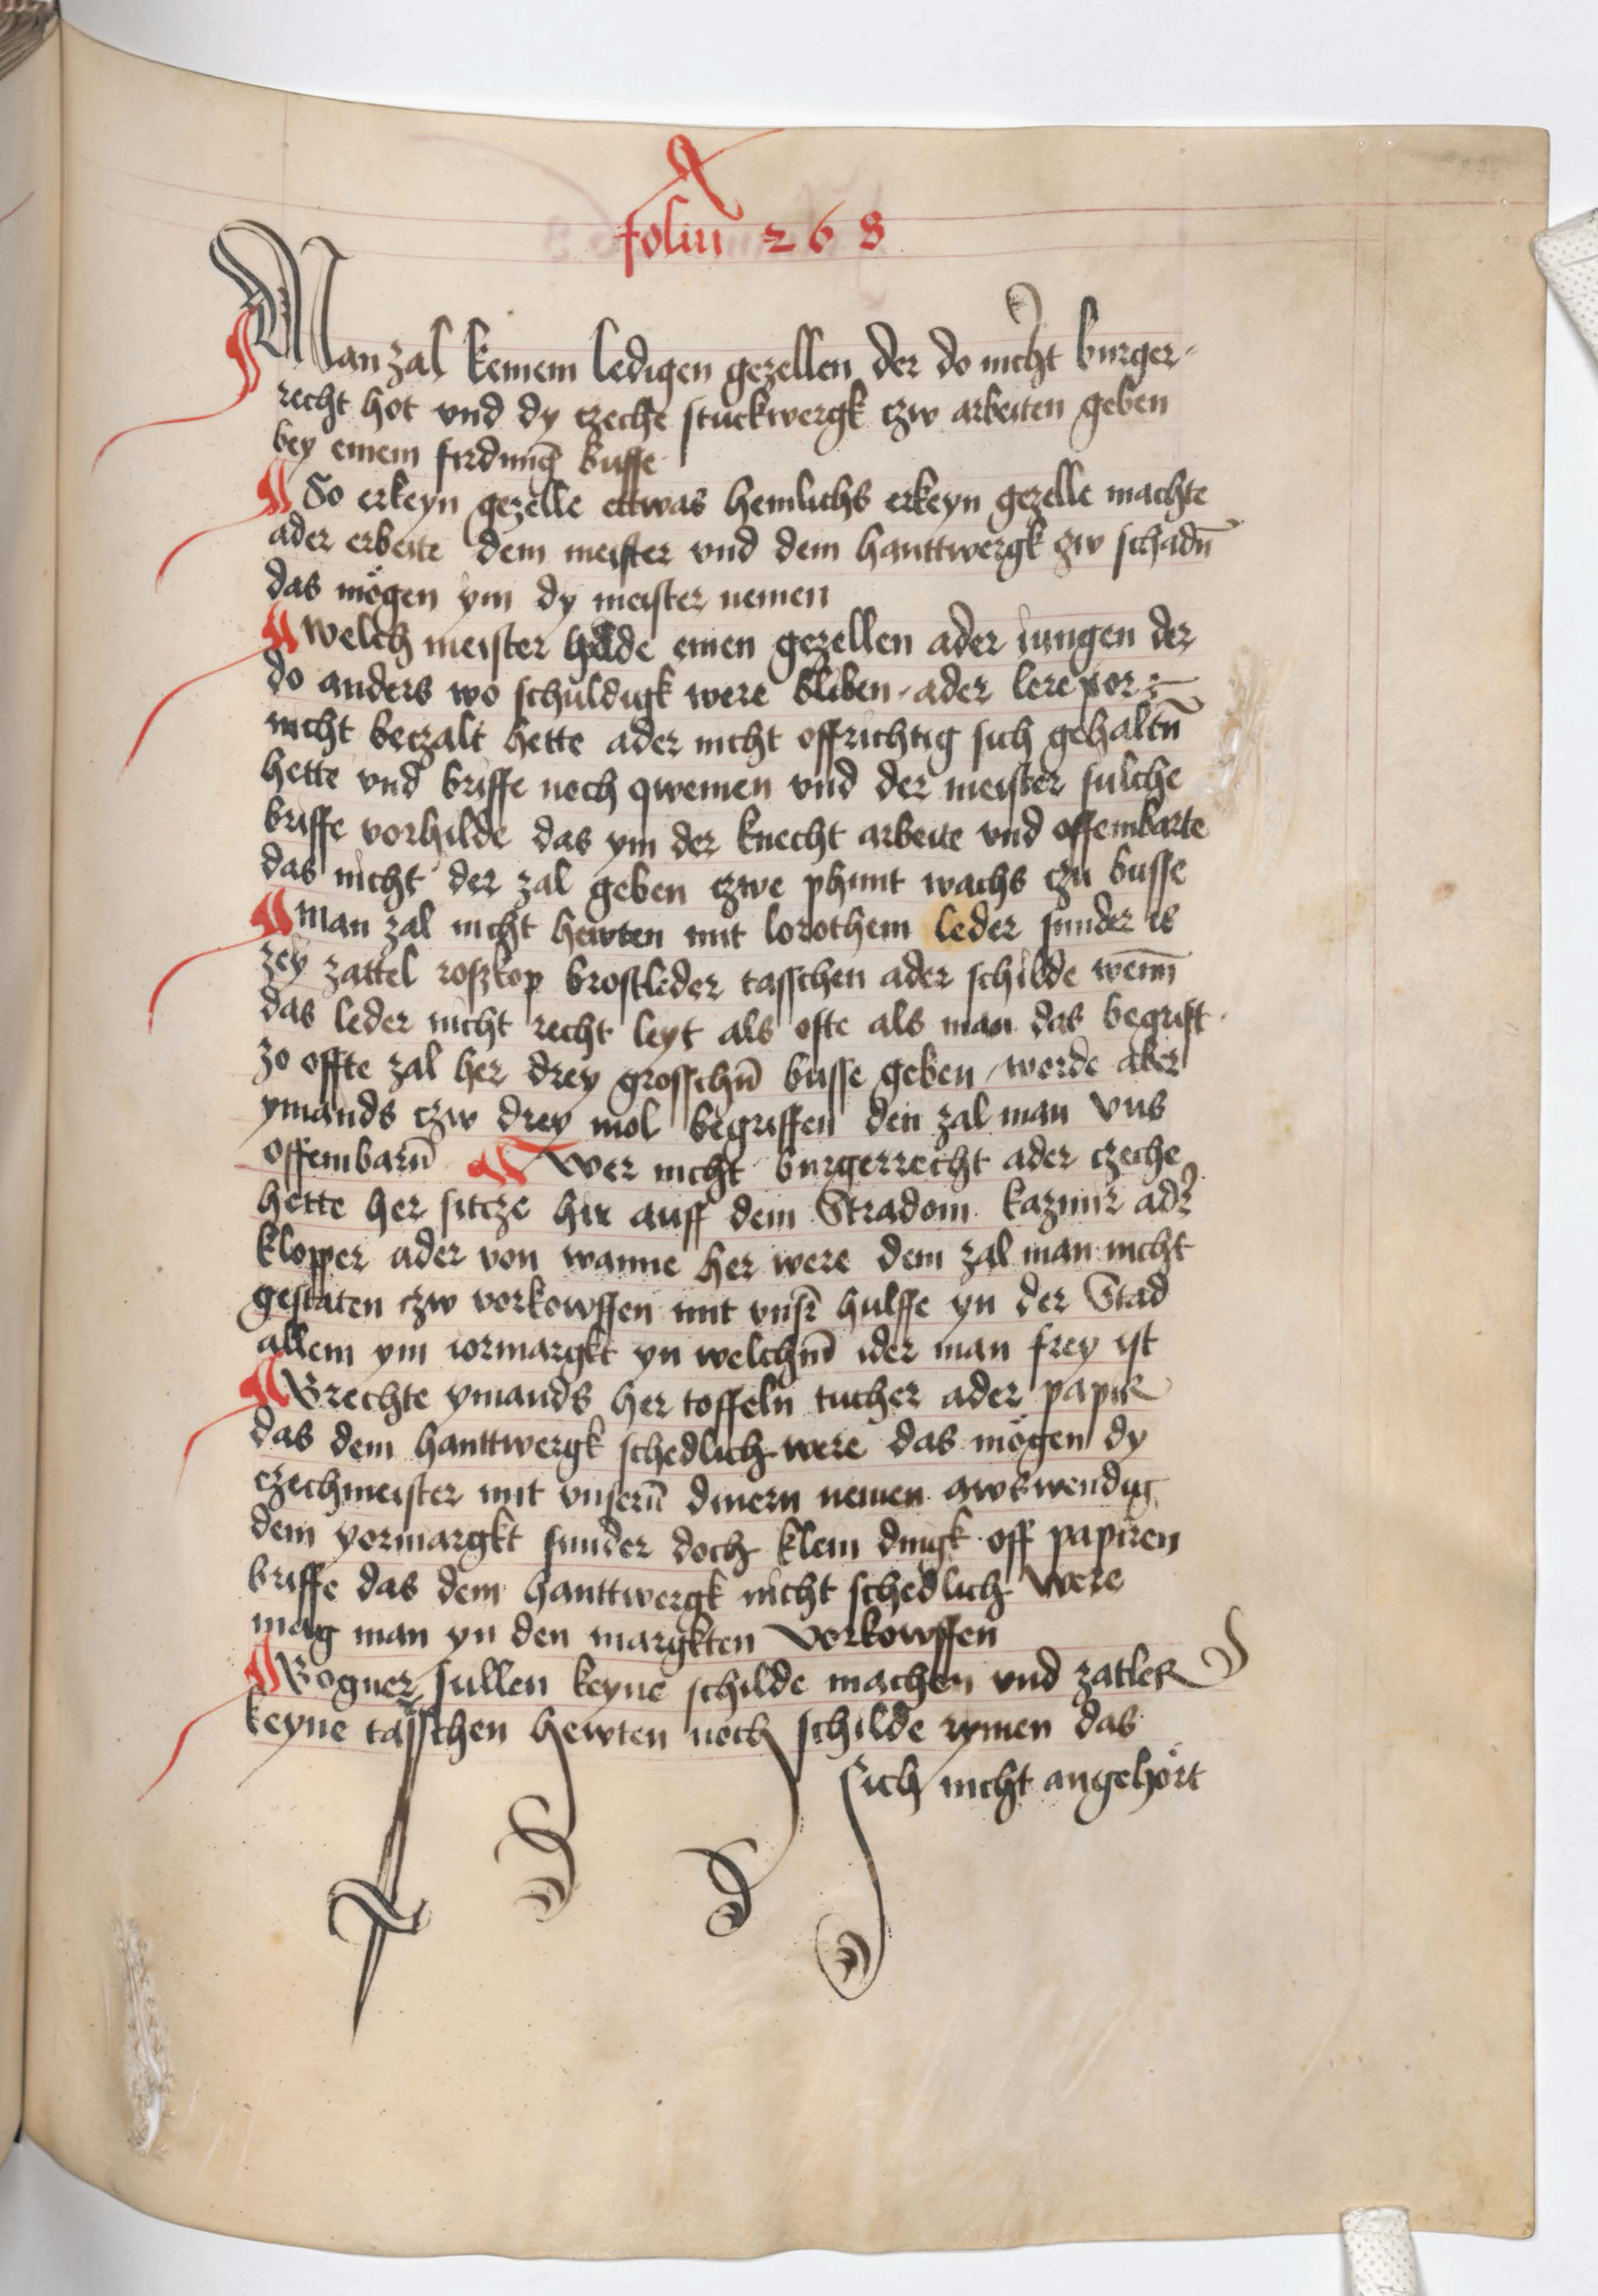 foliu 268
Man zal keinem ledigen gezellen der do nicht burger-
recht hot vnd dy czeche stuckwergk czw arbeiten geben
bey einem firdung busse
So erkeyn gezelle ettwas hemlichs erkeyn gezelle machte
ader erbeite dem meister vnd dem hanttwergk zw schadn̄
das mögen ym dy meister nemen
welch meister hilde einen gezellen ader iungen der
do anders wo schuldigk were bliben ader lere vor
nicht beczalt hette ader nicht offrichtig sich gehaltn̄
hette vnd briffe noch qwemen vnd der meister sulche
briffe vorhilde das ym der knecht arbeite vnd offembarte
das nicht der zal geben czwe phunt wachs czu busse
man zal nicht hewten mit lorothem leder sunder is
zey zattel roszkop brostleder tasschen ader schilde wenn̄
das leder nicht recht leyt als ofte als man das begrift
zo offte zal her drey grosschn̄ busse geben werde aber
ymands czw drey mol begriffen den zal man vns
offembarn̄ Wer nicht burgerrecht ader czeche
hette her sitcze hir auff dem Stradom kazmir adr
klopper ader von wanne her were dem zal man nicht
gestaten czw vorkowffen mit vnsr̄ hulffe yn der Stad
allein ym iormargkt yn welchm̄ ider man frey ist
Brechte ymands her toffeln tucher ader papir
das dem hanttwergk schedlich were das mögen dy
czechmeister mit vnsern̄ dinern nemen awswendig
dem yormargkt sunder doch klein dingk off papiren
briffe das dem hanttwergk nicht schedlich were
mag man yn den margkten vorkowffen
Bogner sullen keyne schilde machen vnd zatler
keyne tasschen hewten noch schilde rymen das
sich nicht angehört